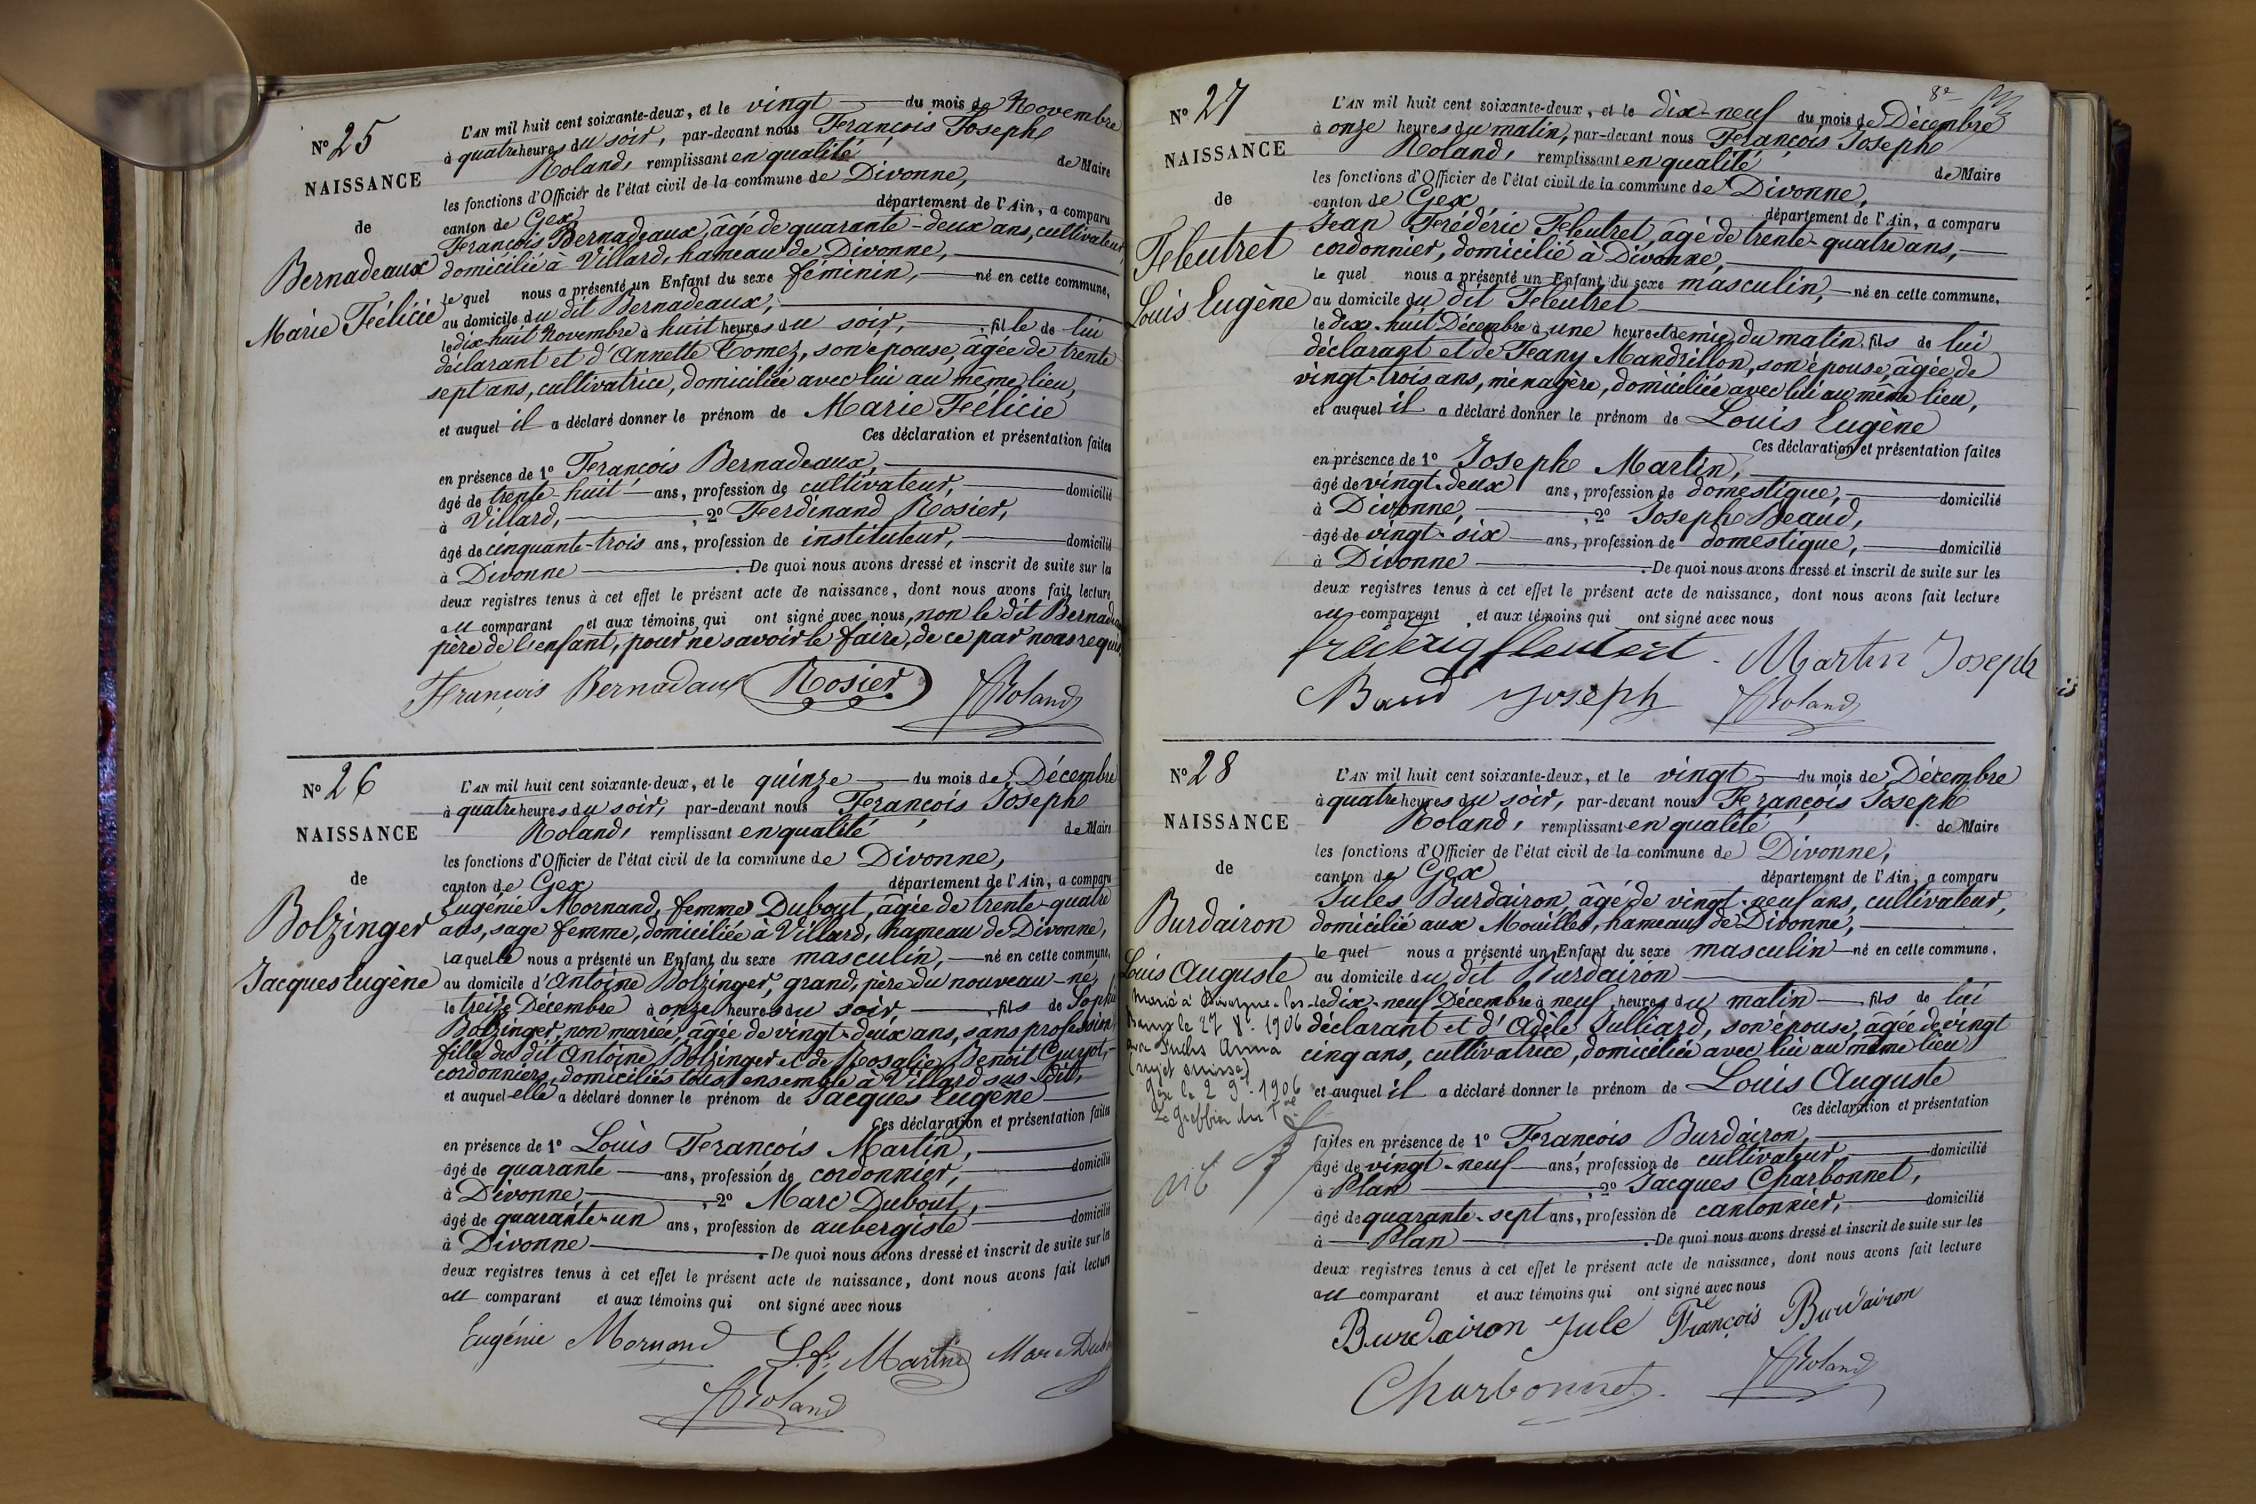 N° 25
NAISSANCE
de
Bernadeaux
Marie Félicie
L'AN mil huit cent soixante-deux, et le vingt du mois de Novembre
à quatre heures du soir, par-devant nous François Joseph
Roland, remplissant en qualité de Maire
les fonctions d'Officier de l'état civil de la commune de Divonne,
canton de Gex département de l'Ain, a comparu
François Bernadeaux, âgé de quarante-deux ans, cultivateur,
domicilié à Villard, hameau de Divonne,
le quel nous a présenté un Enfant du sexe féminin, né en cette commune,
au domicile du dit Bernadeaux,
le dix-huit Novembre à huit heures du soir, fille de lui
déclarant et d'Annette Tomez, son épouse, âgée de trente
sept ans, cultivatrice, domiciliée avec lui au même lieu,
et auquel il a déclaré donner le prénom de Marie Félicie
Ces déclaration et présentation faites
en présence de 1° François Bernadeaux,
âgé de trente-huit ans, profession de cultivateur, domicilié
à Villard, 2° Ferdinand Rosier,
âgé de cinquante-trois ans, profession de instituteur, domicilié
à Divonne. De quoi nous avons dressé et inscrit de suite sur les
deux registres tenus à cet effet le présent acte de naissance, dont nous avons fait lecture
au comparant et aux témoins qui ont signé avec nous, non le dit
père de l'enfant, pour ne savoir le faire, de ce par nous requis.
François Bernadaux Rosier JRoland
N° 26
NAISSANCE
de
Bolzinger
Jacques Eugène
L'AN mil huit cent soixante-deux, et le quinze du mois de Décembre
à quatre heures du soir, par-devant nous François Joseph
Roland, remplissant en qualité de Maire
les fonctions d'Officier de l'état civil de la commune de Divonne,
canton de Gex département de l'Ain, a comparu
Eugénie Mornand, femme Dubout, âgée de trente-quatre
ans, sage femme, domiciliée à Villard, hameau de Divonne,
laquelle nous a présenté un Enfant du sexe masculin, né en cette commune,
au domicile d'Antoine Bolzinger, grand, père du nouveau-né,
le treize Décembre à onze heures du soir, fils de Sophie
Bolzinger, non mariée, âgée de vingt-deux ans, sans profession,
fille du dit Antoine Bolzinger et de Rosalie Benoit Guyot,
cordonniers, domiciliés tous ensemble à Villard sus-dit,
et auquel elle a déclaré donner le prénom de Jacques Eugène
Ces déclaration et présentation faites
en présence de 1° Louis François Martin,
âgé de quarante ans, profession de cordonnier, domicilié
à Divonne, 2° Marc Dubout,
âgé de quarante-un ans, profession de aubergiste domicilié
à Divonne. De quoi nous avons dressé et inscrit de suite sur les
deux registres tenus à cet effet le présent acte de naissance, dont nous avons fait lecture
au comparant et aux témoins qui ont signé avec nous
Eugénie Mornand L.f. Martin Marc
JRoland
8e
N° 27
NAISSANCE
de
Fleutret
Louis Eugène
L'AN mil huit cent soixante-deux, et le dix-neuf du mois de Décembre
à onze heures du matin, par-devant nous François Joseph
Roland, remplissant en qualité de Maire
les fonctions d'Officier de l'état civil de la commune de Divonne,
canton de Gex département de l'Ain, a comparu
Jean Frédéric Fleutret, âgé de trente-quatre ans,
cordonnier, domicilié à Divonne,
le quel nous a présenté un Enfant du sexe masculin, né en cette commune,
au domicile du dit Fleutret
le dix-huit Décembre à une heure et demie du matin fils de lui
déclarant et de Feany Mandrillon, son épouse, âgée de
vingt-trois ans, ménagère, domiciliée avec lui au même lieu,
et auquel il a déclaré donner le prénom de Louis Eugène
Ces déclaration et présentation faites
en présence de 1° Joseph Martin,
âgé de vingt-deux ans, profession de domestique, domicilié
à Divonne, 2° Joseph Beaud,
âgé de vingt-six ans, profession de domestique, domicilié
à Divonne. De quoi nous avons dressé et inscrit de suite sur les
deux registres tenus à cet effet le présent acte de naissance, dont nous avons fait lecture
au comparant et aux témoins qui ont signé avec nous
Martin Joseph
Baud Joseph JRoland
N° 28
NAISSANCE
de
Burdairon
Louis Auguste
Marié à Divonne-les-
Bains le 27 8e 1906
avec Fuchs Anna
(sujet suisse)
Gex le 2 9e 1906
Le Greffier du Tal
L'AN mil huit cent soixante-deux, et le vingt du mois de Décembre
à quatre heures du soir, par-devant nous François Joseph
Roland, remplissant en qualité de Maire
les fonctions d'Officier de l'état civil de la commune de Divonne,
canton de Gex département de l'Ain, a comparu
Jules Burdairon, âgé de vingt-neuf ans, cultivateur,
domicilié aux Mouilles, hameau de Divonne,
le quel nous a présenté un Enfant du sexe masculin né en cette commune,
au domicile du dit Burdairon
le dix-neuf Décembre à neuf heures du matin fils de lui
déclarant et d'Adèle Julliard, son épouse, âgée de vingt
cinq ans, cultivatrice, domiciliée avec lui au même lieu
et auquel il a déclaré donner le prénom de Louis Auguste
Ces déclaration et présentation
faites en présence de 1° François Burdairon,
âgé de vingt-neuf ans, profession de cultivateur, domicilié
à Plan, 2° Jacques Charbonnet,
âgé de quarante-sept ans, profession de cantonnier, domicilié
à Plan. De quoi nous avons dressé et inscrit de suite sur les
deux registres tenus à cet effet le présent acte de naissance, dont nous avons fait lecture
au comparant et aux témoins qui ont signé avec nous
Burdairon Jule François Burdairon
Charbonnet. JRoland